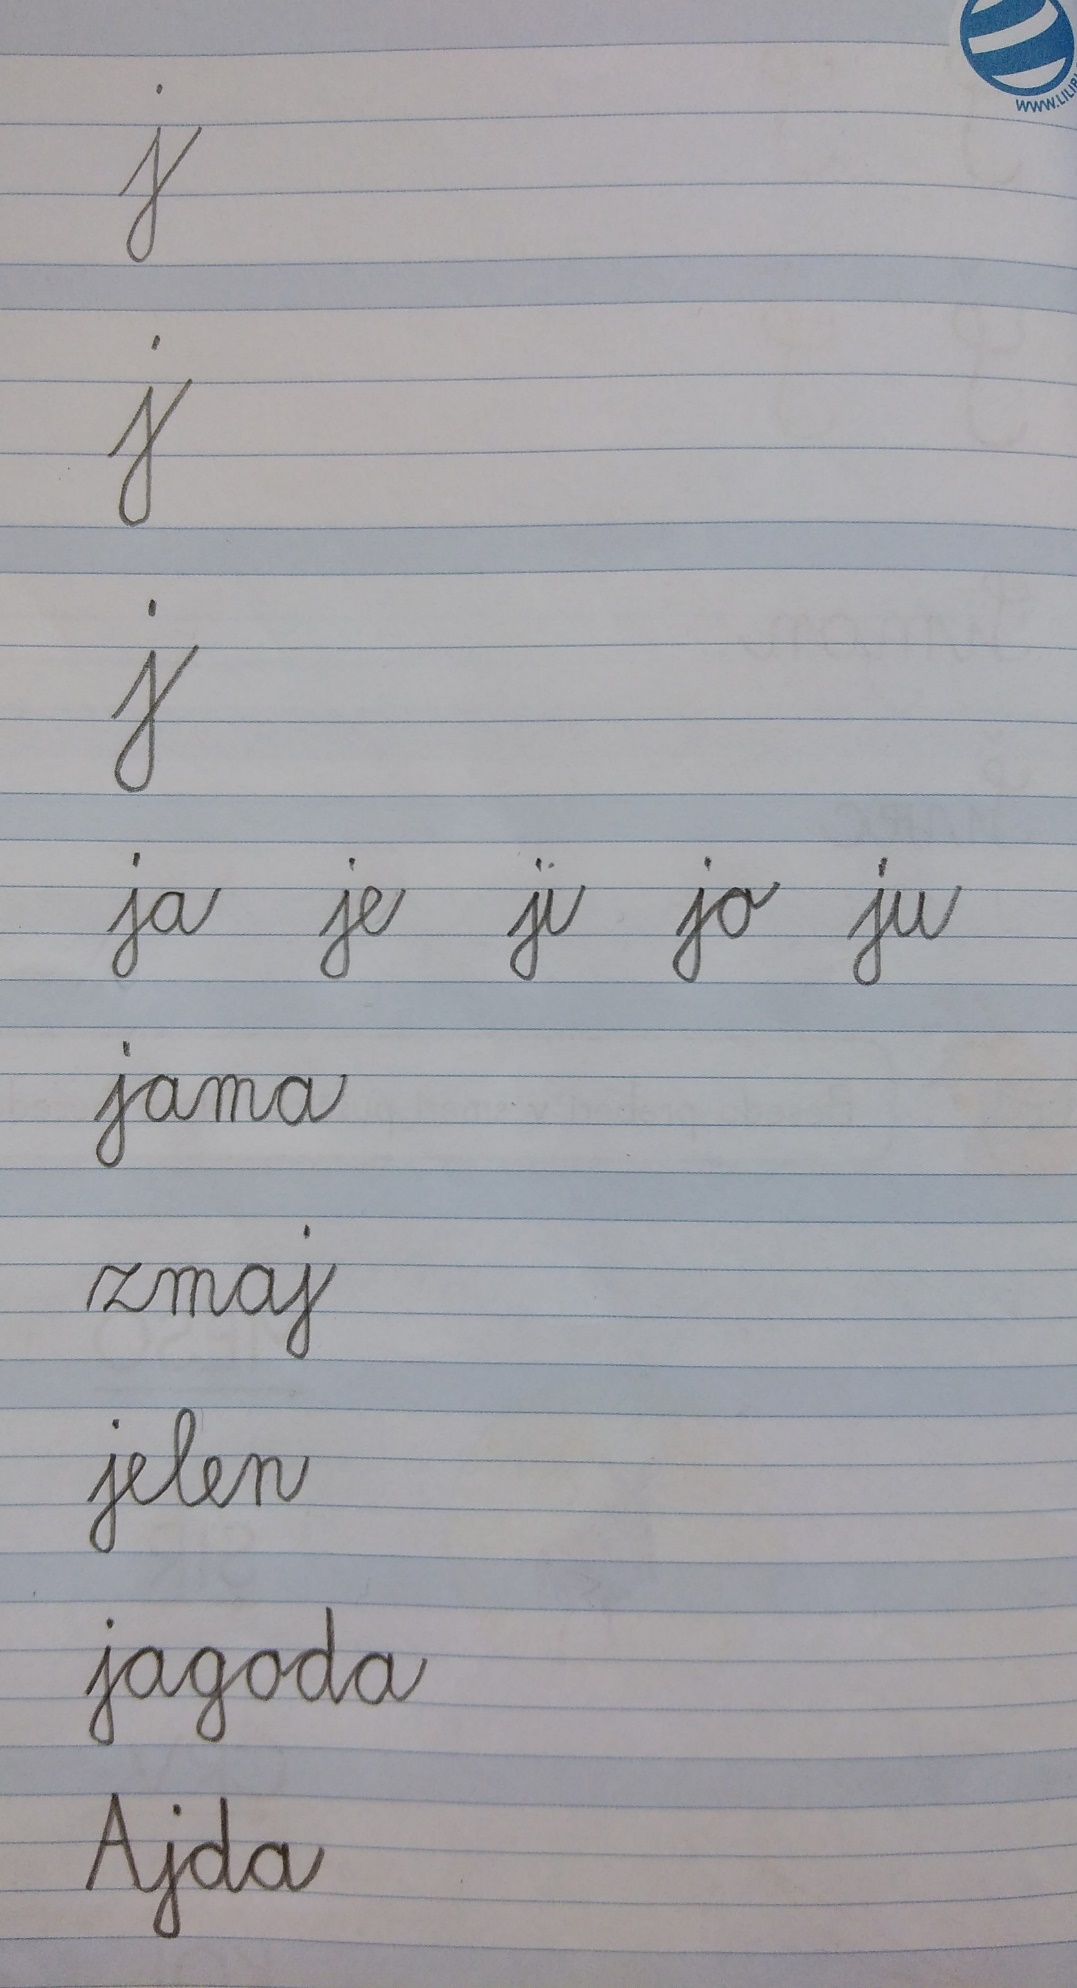 WWW.LILI
j
j
j
ja je ji jo ju
jama
zmaj
jelen
jagoda
Ajda